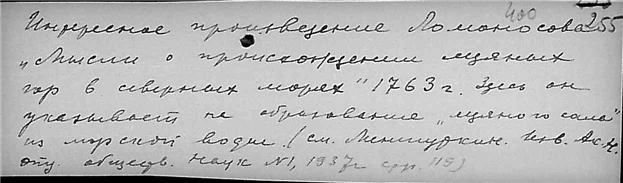 Интересное произведение Ломоносова 400 255
„Мысли о происхождении ледяных
гор в северных морях" 1763 г. Здесь он
указывает на образование „ледяного сала"
из морской воды (см. Меншуткин. Изв. Ак. Н.
отд. обществ. Наук N1, 1937г стр. 118)